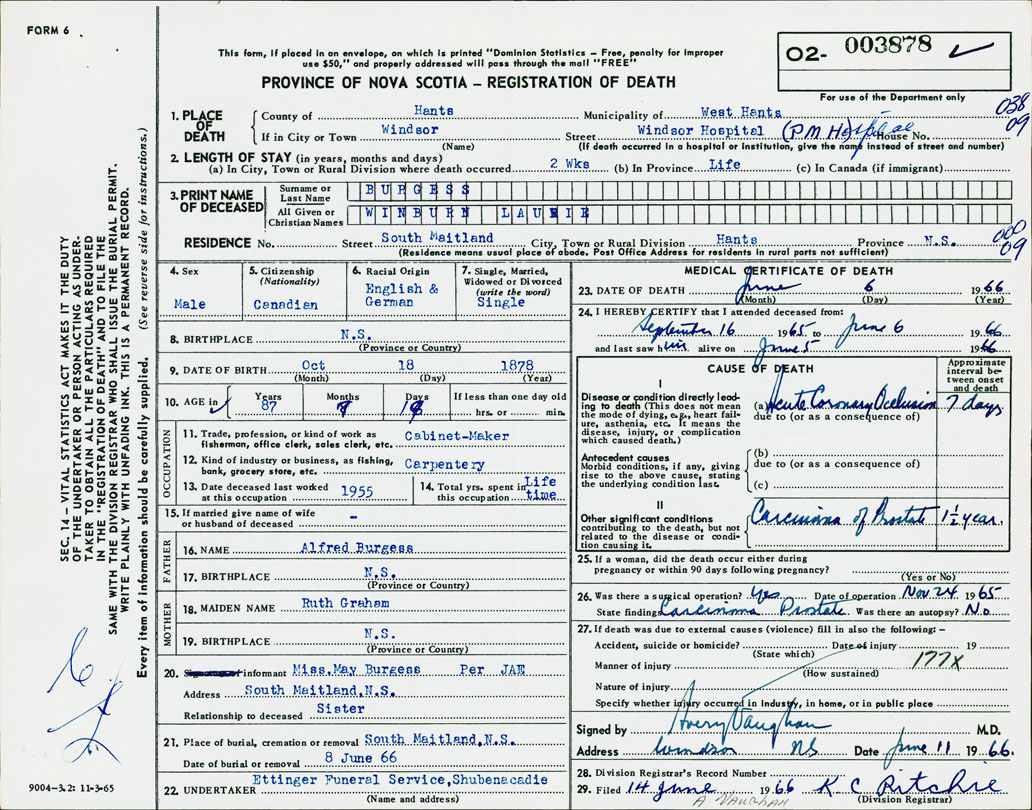 FORM 6
This form, if placed in an envelope, on which is printed "Dominion Statistics – Free, penalty for improper
use $50," and properly addressed will pass through the mail "FREE"
PROVINCE OF NOVA SCOTIA – REGISTRATION OF DEATH
O2- 003878
For use of the Department only
038
09
1. PLACE OF DEATH
County of Hants Municipality of West Hants
If in City or Town Windsor Street Windsor Hospital (PM Hospital House No.
(Name) (If death occurred in a hospital or institution, give the name instead of street and number)
2. LENGTH OF STAY (in years, months and days)
(a) In City, Town or Rural Division where death occurred 2 Wks (b) In Province Life (c) In Canada (if immigrant)
3. PRINT NAME OF DECEASED
Surname or Last Name BURGESS
All Given or Christian Names WINBURN LAURIE
RESIDENCE No. Street South Maitland City, Town or Rural Division Hants Province N.S.
(Residence means usual place of abode. Post Office Address for residents in rural parts not sufficient)
000
09
4. Sex
Male
5. Citizenship
(Nationality)
Canadian
6. Racial Origin
English &
German
7. Single, Married,
Widowed or Divorced
(write the word)
Single
8. BIRTHPLACE N.S.
(Province or Country)
9. DATE OF BIRTH Oct 18 1878
(Month) (Day) (Year)
10. AGE in Years Months Days If less than one day old
87 7 hrs. or min.
OCCUPATION
11. Trade, profession, or kind of work as Cabinet-Maker
fisherman, office clerk, sales clerk, etc.
12. Kind of industry or business, as fishing, Carpentery
bank, grocery store, etc.
13. Date deceased last worked
at this occupation 1955
14. Total yrs. spent in Life
this occupation time
15. If married give name of wife
or husband of deceased -
FATHER
16. NAME Alfred Burgess
17. BIRTHPLACE N.S.
(Province or Country)
MOTHER
18. MAIDEN NAME Ruth Graham
19. BIRTHPLACE N.S.
(Province or Country)
20. informant Miss.May Burgess Per JAE
Address South Maitland,N.S.
Relationship to deceased Sister
21. Place of burial, cremation or removal South Maitland,N.S.
Date of burial or removal 8 June 66
22. UNDERTAKER Ettinger Funeral Service,Shubenacadie
(Name and address)
MEDICAL CERTIFICATE OF DEATH
23. DATE OF DEATH June 6 1966
(Month) (Day) (Year)
24. I HEREBY CERTIFY that I attended deceased from:
September 16 1965 to June 6 1966
and last saw him alive on June 5 1966
CAUSE OF DEATH
Approximate
interval be-
tween onset
and death
I
Disease or condition directly lead-
ing to death (This does not mean
the mode of dying, e.g., heart fail-
ure, asthenia, etc. It means the
disease, injury, or complication
which caused death.)
(a) Acute Coronary Occlusion 7 days
due to (or as a consequence of)
Antecedent causes
Morbid conditions, if any, giving
rise to the above cause, stating
the underlying condition last.
(b)
due to (or as a consequence of)
(c)
II
Other significant conditions
contributing to the death, but not
related to the disease or condi-
tion causing it.
Carcinoma of Prostate 1½ year.
25. If a woman, did the death occur either during
pregnancy or within 90 days following pregnancy?
(Yes or No)
26. Was there a surgical operation? Yes Date of operation Nov 24 1965
State findings Carcinoma Prostate Was there an autopsy? No
27. If death was due to external causes (violence) fill in also the following: –
Accident, suicide or homicide? Date of injury 19
(State which)
Manner of injury 177X
(How sustained)
Nature of injury
Specify whether injury occurred in Industry, in home, or in public place
Signed by Avery Vaughan M.D.
Address Windsor NS Date June 11 1966.
28. Division Registrar's Record Number
29. Filed 14 June 1966 K C Ritchie
A. VAUGHAN (Division Registrar)
SEC. 14 – VITAL STATISTICS ACT MAKES IT THE DUTY
OF THE UNDERTAKER OR PERSON ACTING AS UNDER-
TAKER TO OBTAIN ALL THE PARTICULARS REQUIRED
IN THE "REGISTRATION OF DEATH" AND TO FILE THE
SAME WITH THE DIVISION REGISTRAR WHO SHALL ISSUE THE BURIAL PERMIT.
WRITE PLAINLY WITH UNFADING INK. THIS IS A PERMANENT RECORD.
Every item of information should be carefully supplied. (See reverse side for instructions.)
9004-3.2: 11-3-65